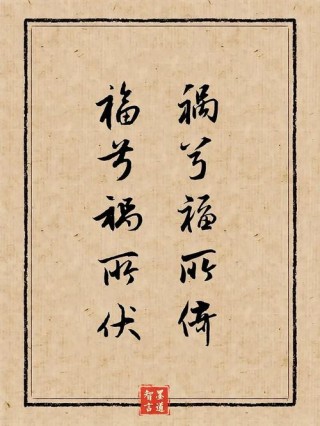 祸兮福所倚
福兮祸所伏
墨道
智言